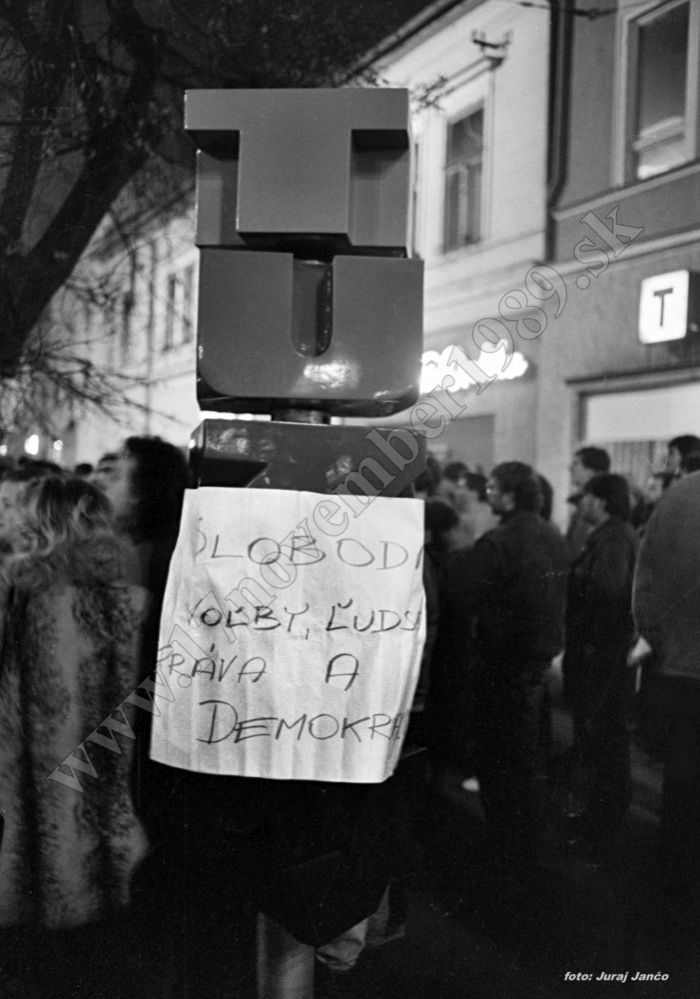 T
U
T
SLOBODA
VOĽBY, ĽUDS
PRÁVA A
DEMOKRA
www.17november1989.sk
foto: Juraj Jančo